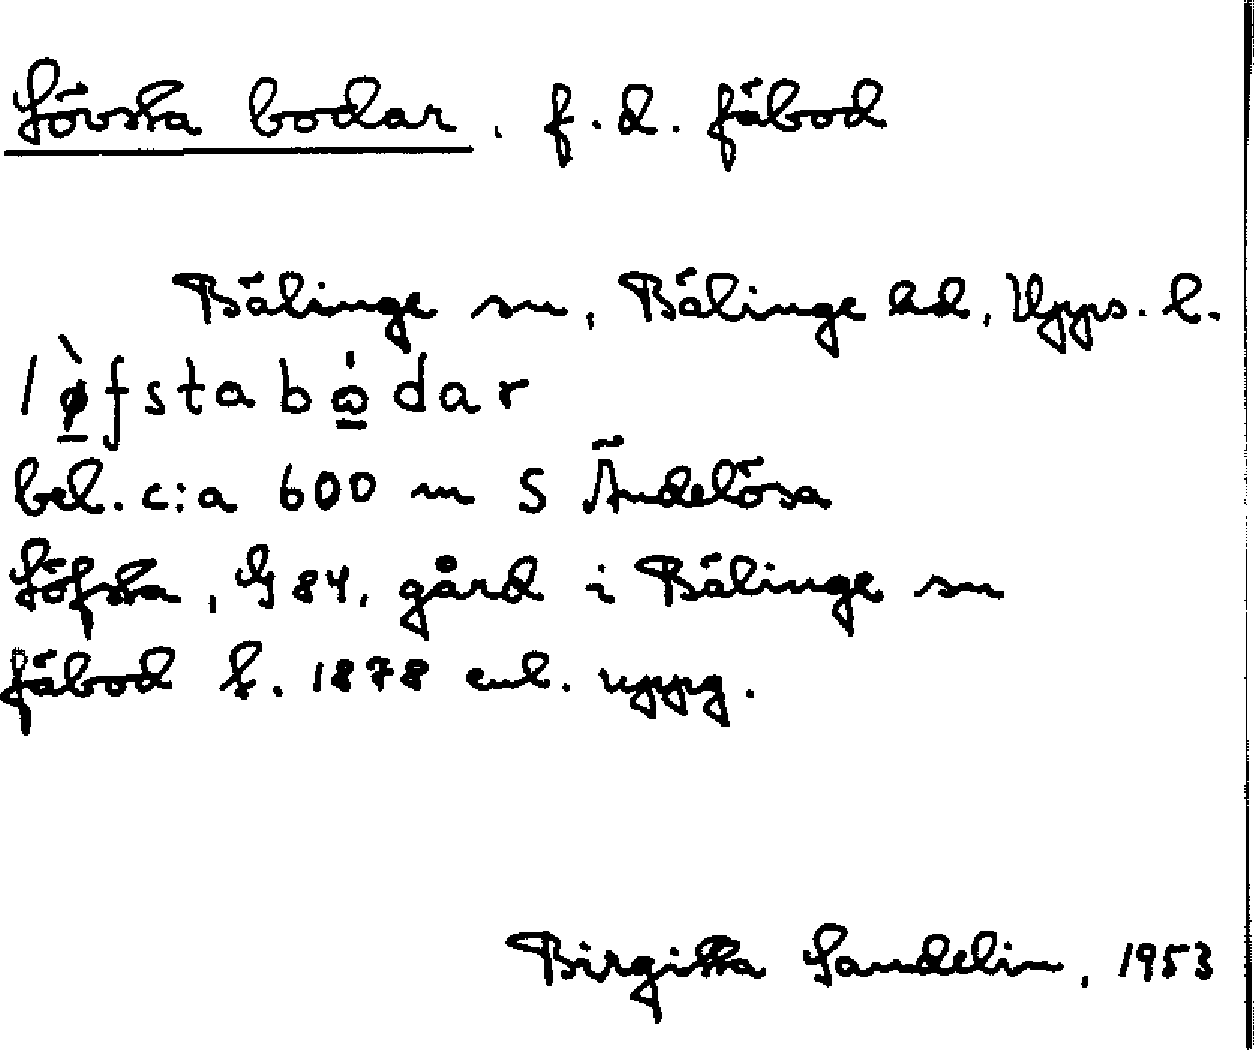 Lövsta bodar, f.d. fäbod
Bälinge sn, Bälinge hd, Upps. l.
lø̀fstabω̇dar
bel. c:a 600 m S Ändelösa
Löfsta, G 84, gård i Bälinge sn
fäbod t. 1878 enl. uppg.
Birgitta Sandelin, 1953